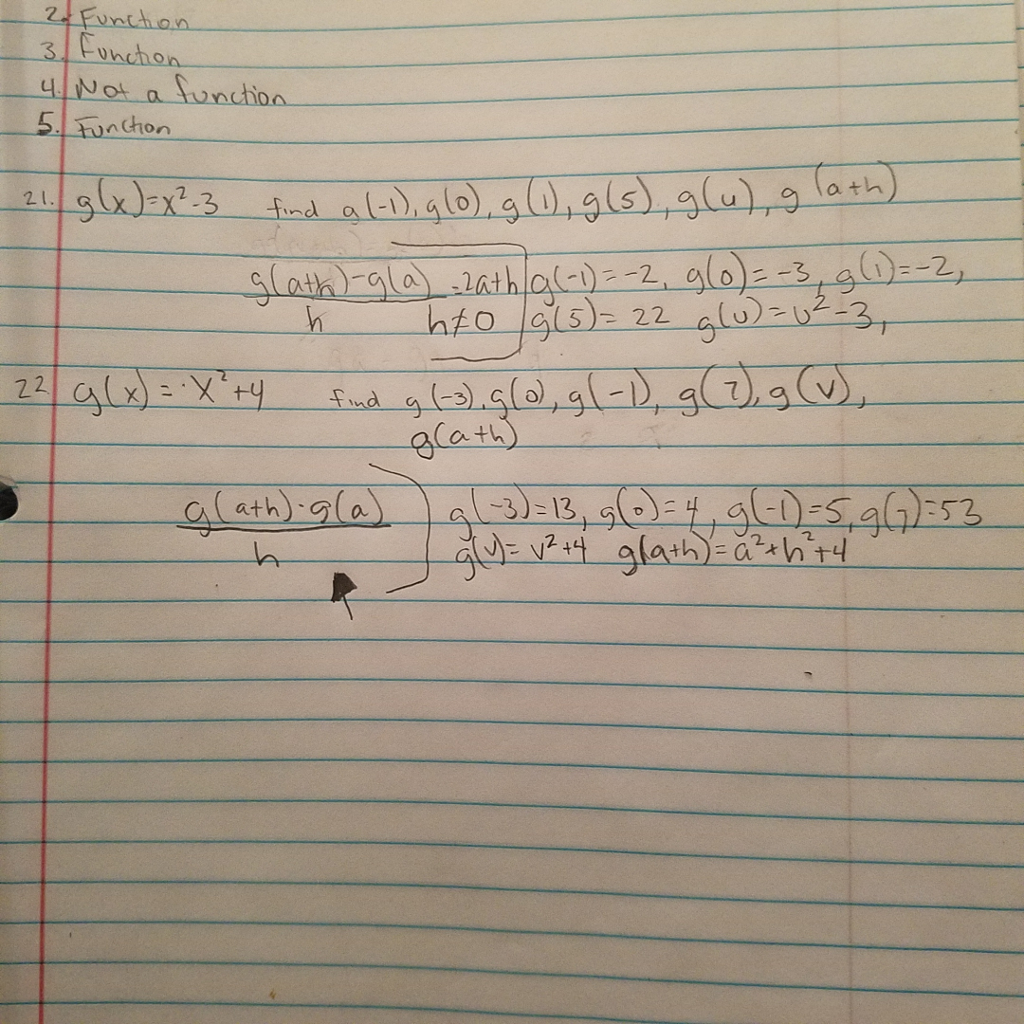 2. Function
3. function
4. Not a function
5. Function
21. g(x)=x²-3 find g(-1), g(0), g(1), g(5), g(u), g(a+h)
g(a+h)-g(a) =2a+h g(-1)=-2, g(0)=-3, g(1)=-2,
h h≠0 g(5)=22 g(u)=u²-3,
22 g(x)=·x²+4 find g(-3), g(0), g(-1), g(7), g(v),
g(a+h)
g(a+h)·g(a) g(-3)=13, g(0)=4, g(-1)=5, g(7)=53
h g(v)=v²+4 g(a+h)=a²+h²+4